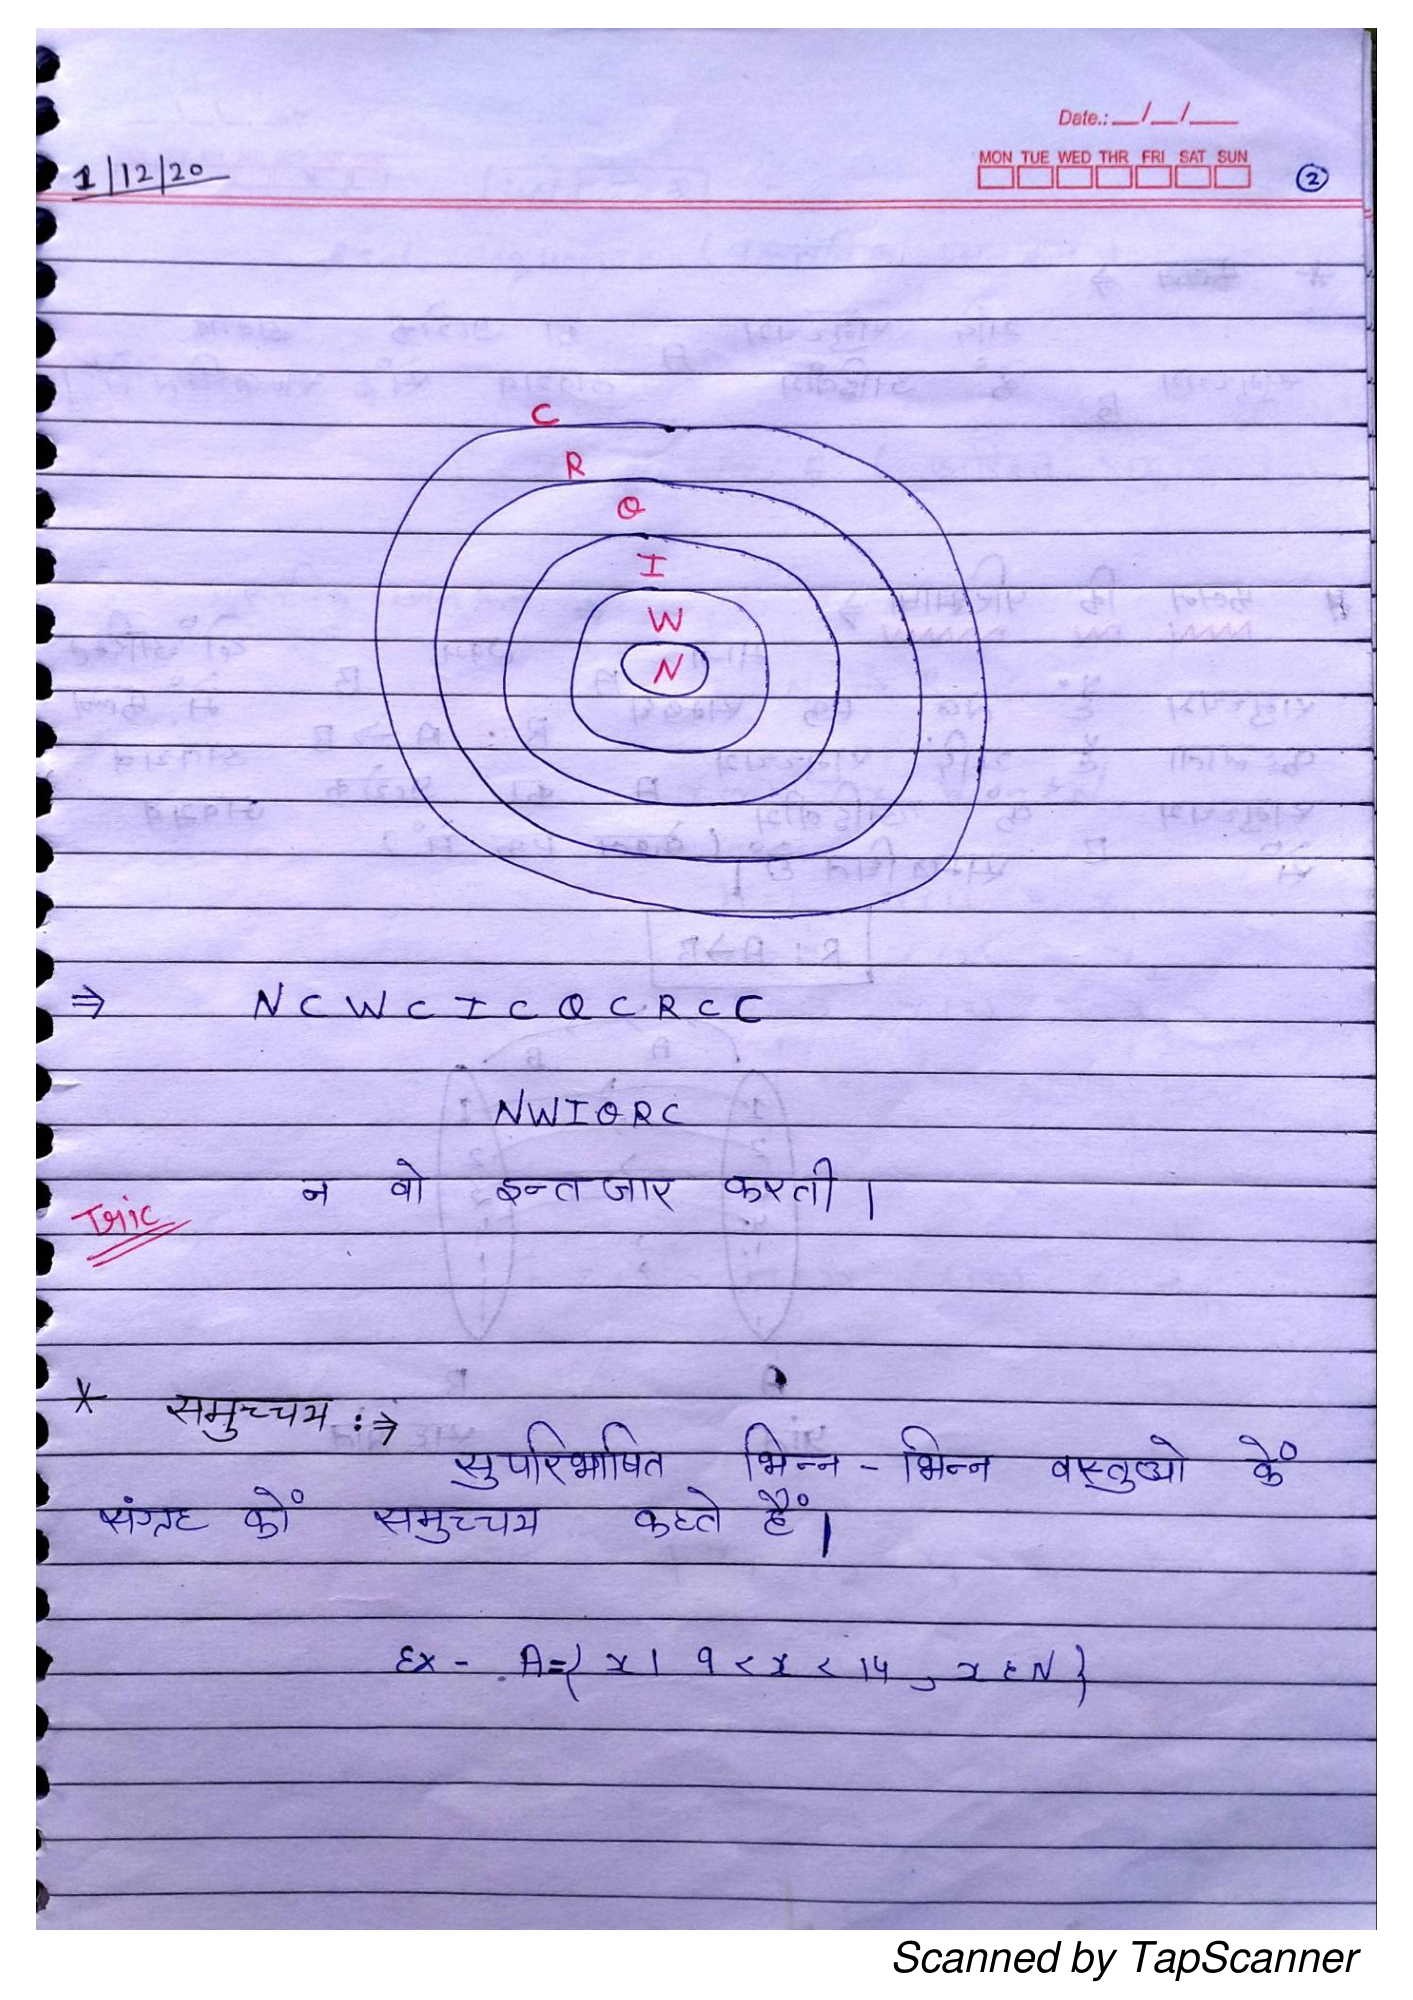 Date.: __/__/___
MON TUE WED THR FRI SAT SUN
1/12/20
②
C
R
Q
I
W
N
⇒ N ⊂ W ⊂ I ⊂ Q ⊂ R ⊂ C
NWIQRC
न वो इन्तजार करती।
Tric
* समुच्चय :⇒
सुपरिभाषित भिन्न - भिन्न वस्तुओ के
संग्रह को समुच्चय कहते हैं।
Ex - A={ x | 9 < x < 14 , x ε N }
Scanned by TapScanner